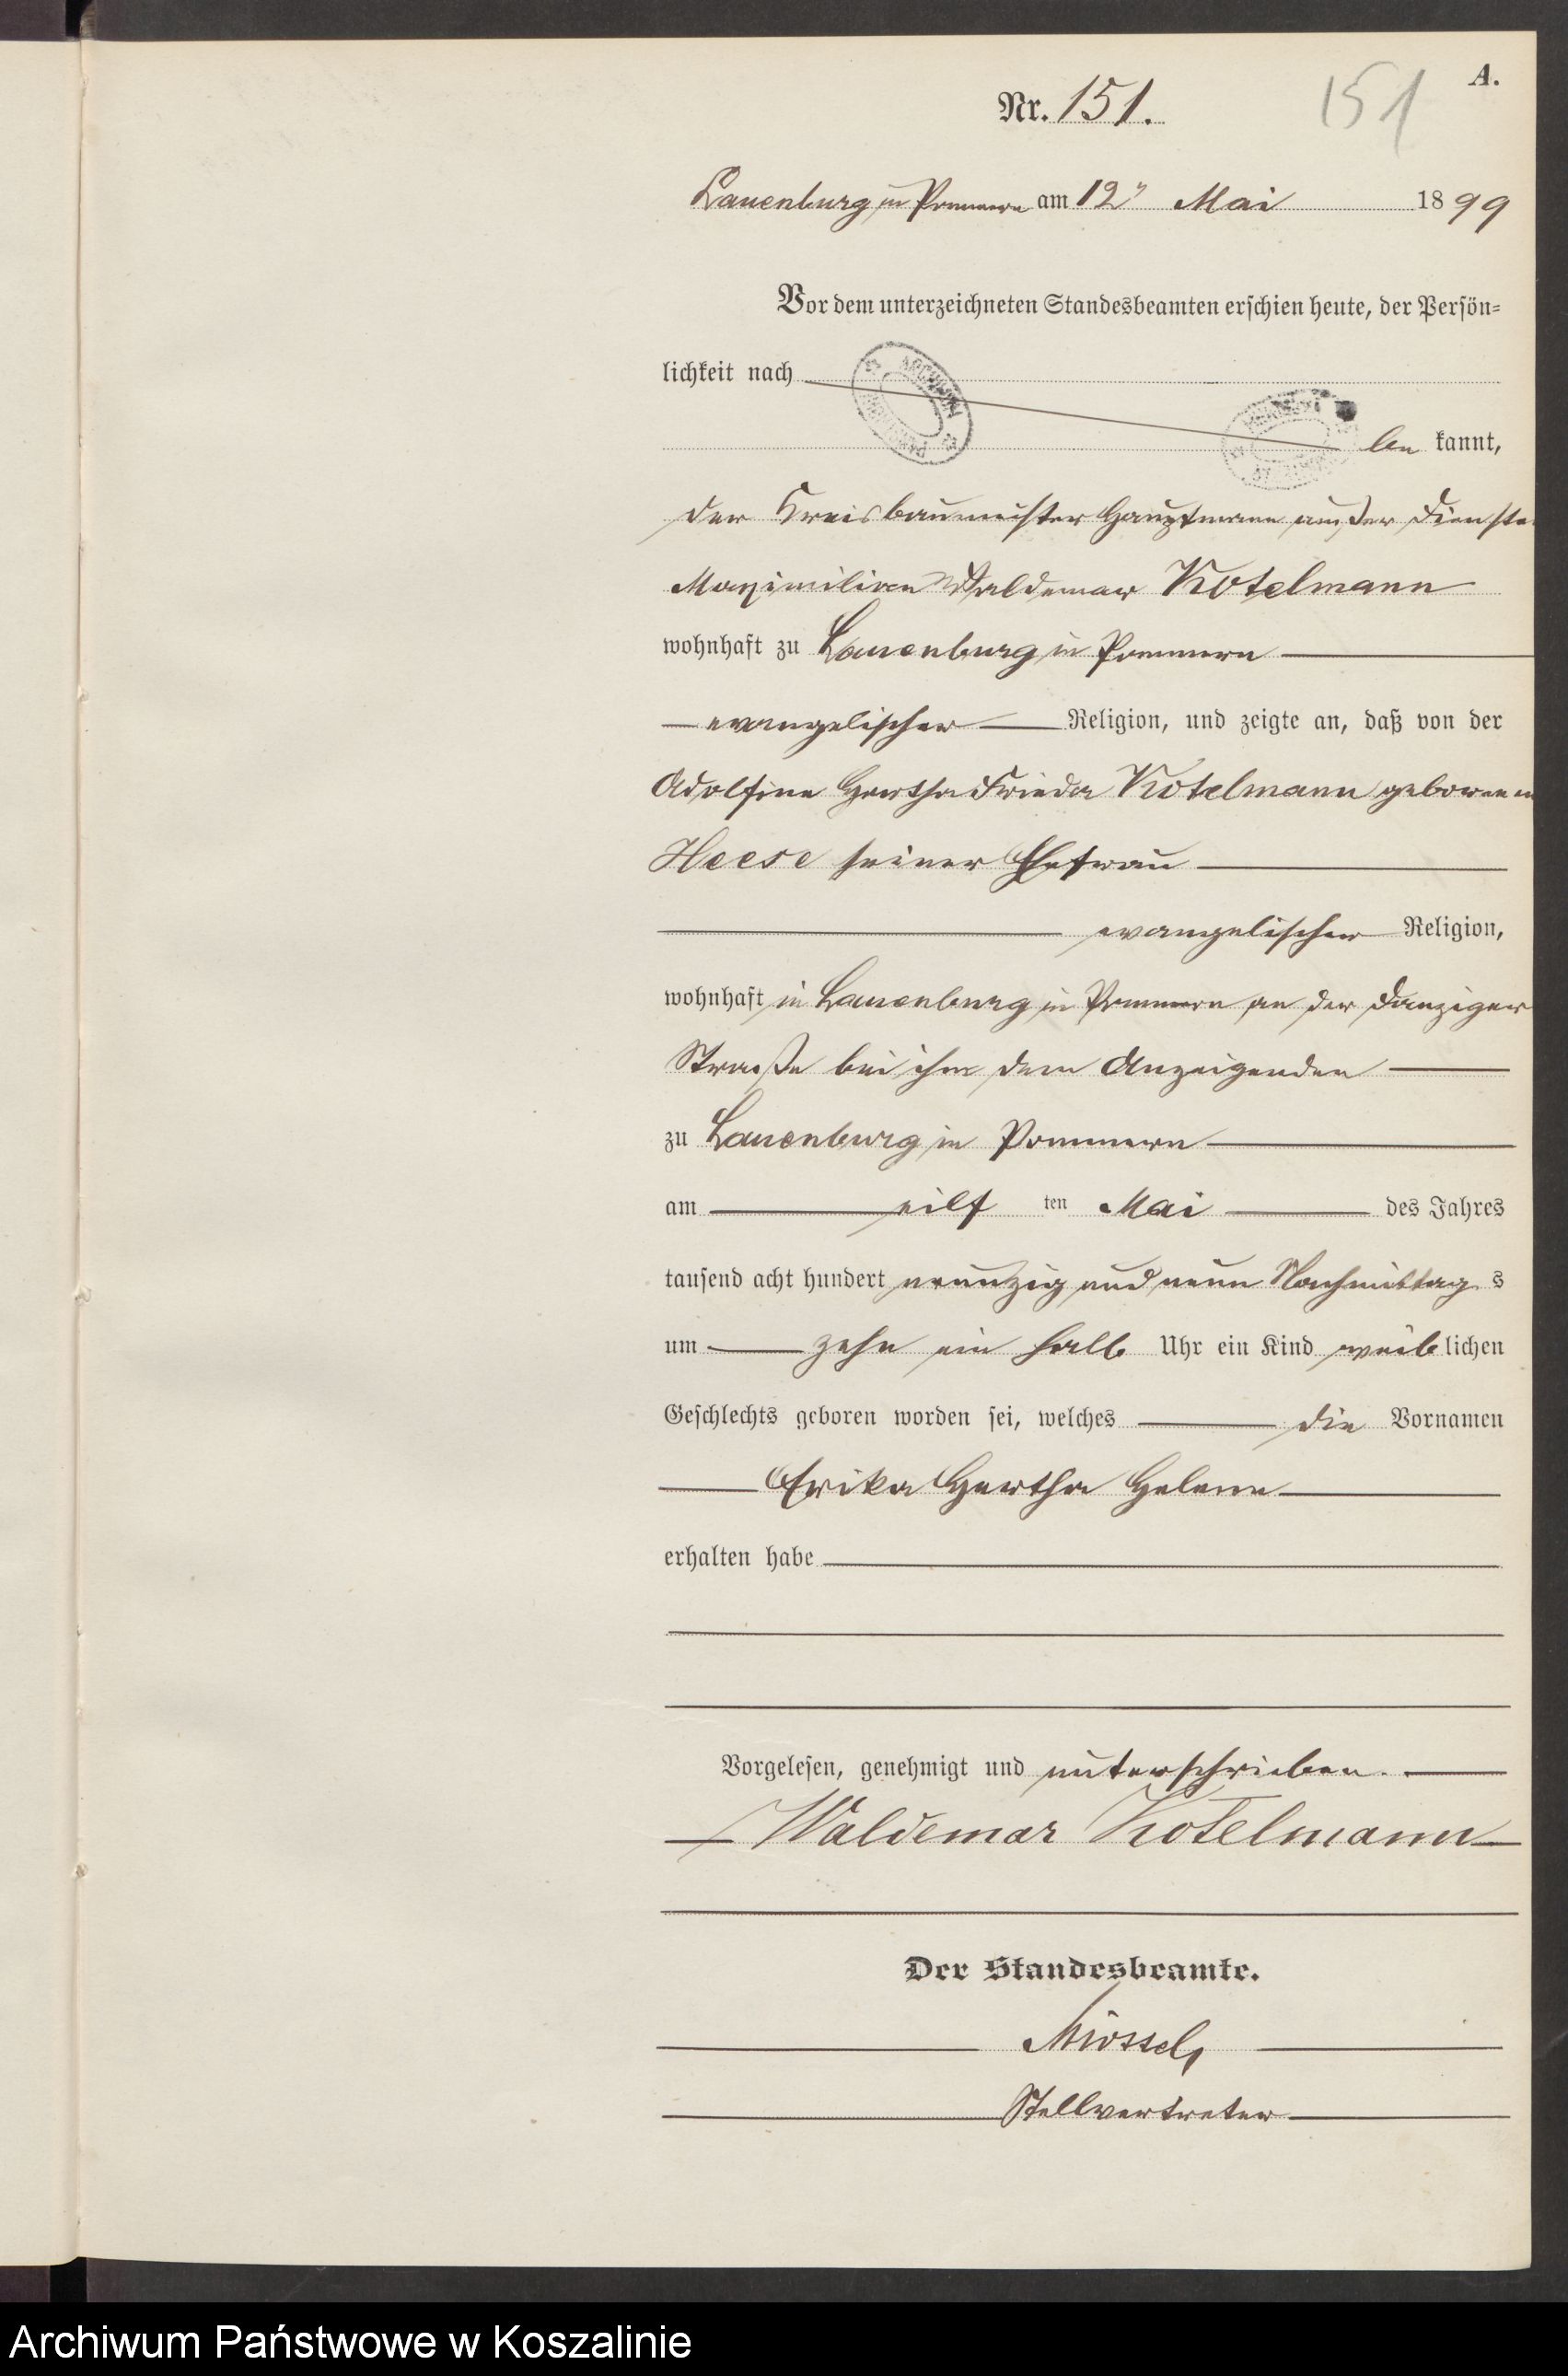 A.
Nr. 151.
151
Lauenburg in Pommern am 12ᵗ Mai 1899
Vor dem unterzeichneten Standesbeamten erschien heute, der Persön=
lichkeit nach
be kannt,
der Kreisbaumeister Hauptmann außer Dienste
Maximilian Waldemar Kotelmann
wohnhaft zu Lauenburg in Pommern
evangelischer Religion, und zeigte an, daß von der
Adolfine Hertha Frieda Kotelmann geborenen
Heese seiner Ehefrau
evangelischer Religion,
wohnhaft in Lauenburg in Pommern an der Danziger
Straße bei ihm dem Anzeigenden
zu Lauenburg in Pommern
am eilf ten Mai des Jahres
tausend acht hundert neunzig und neun Nachmittag s
um zehn ein halb Uhr ein Kind weiblichen
Geschlechts geboren worden sei, welches die Vornamen
Erika Hertha Helene
erhalten habe
Vorgelesen, genehmigt und unterschrieben.
Waldemar Kotelmann
Der Standesbeamte.
Stellvertreter
Archiwum Państwowe w Koszalinie